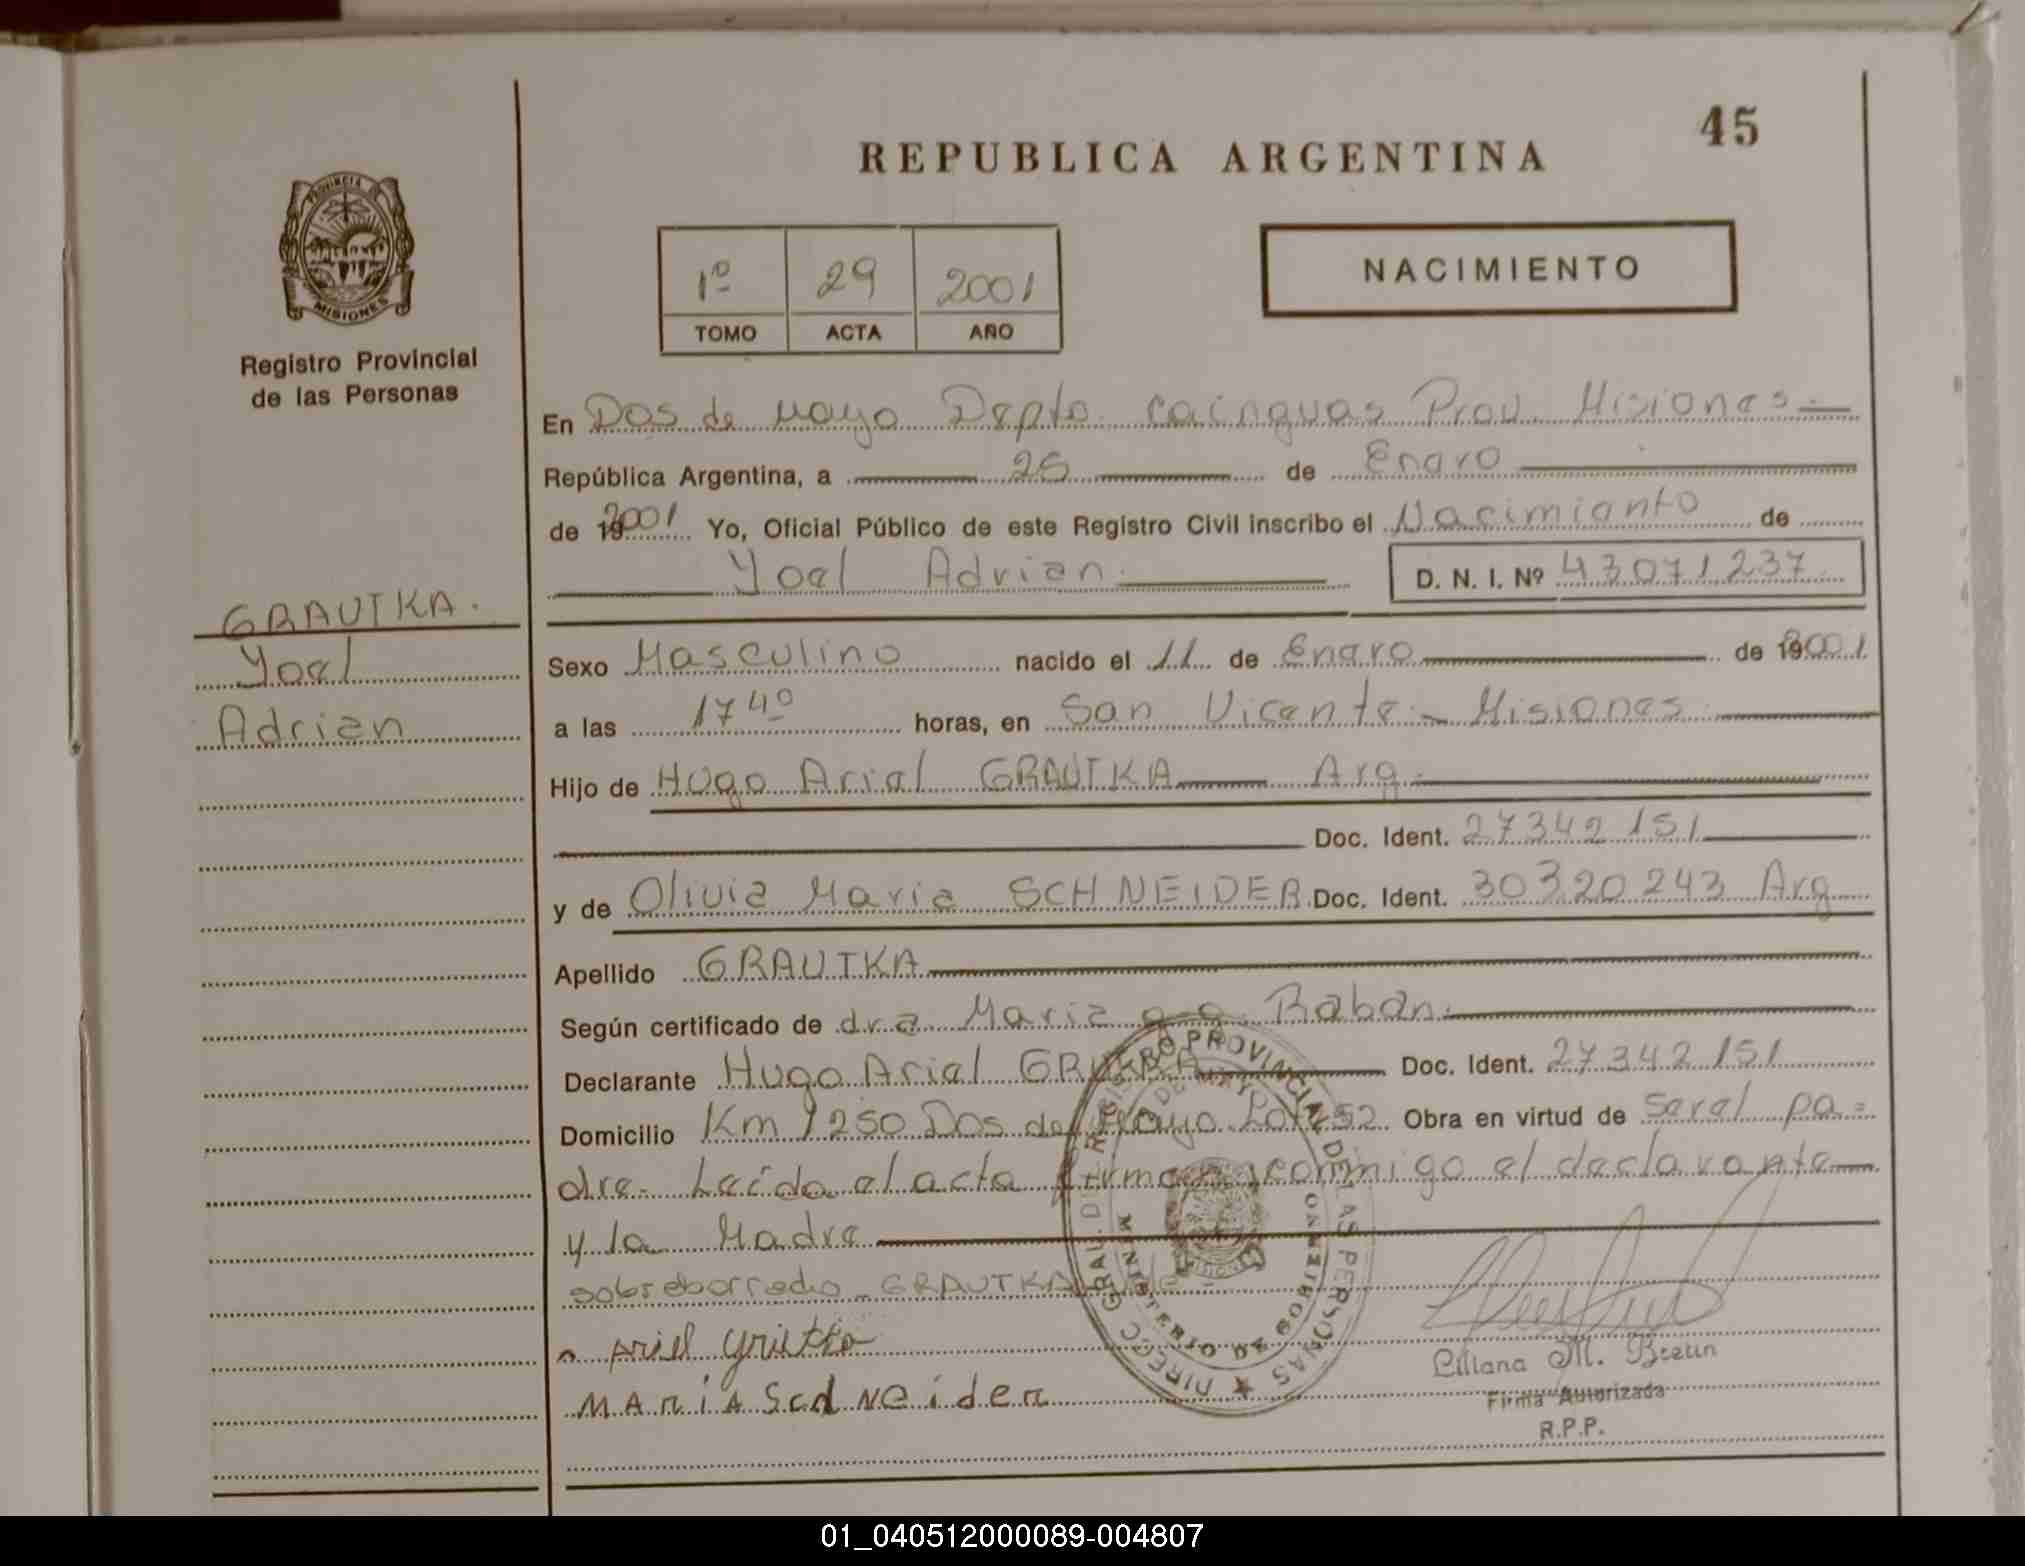 45
REPUBLICA ARGENTINA
PROVINCIA DE
MISIONES
Registro Provincial
de las Personas
1º 29 2001
TOMO ACTA AÑO
NACIMIENTO
En Dos de Mayo Depto. Cainguas Prov. Misiones
República Argentina, a 25 de Enero
de 192001 Yo, Oficial Público de este Registro Civil inscribo el Nacimiento de
Yoel Adrian. D. N. I. Nº 43071237
GRAUTKA.
Yoel
Adrian
Sexo Masculino nacido el 11 de Enero de 192001
a las 17 40 horas, en San Vicente - Misiones
Hijo de Hugo Ariel GRAUTKA Arg.
Doc. Ident. 27342151
y de Olivia Maria SCHNEIDER Doc. Ident. 30320243 Arg
Apellido GRAUTKA
Según certificado de dra Maria Raban.
Declarante Hugo Ariel Doc. Ident. 27342151
Domicilio Km 1250 Dos de Mayo Lote 52 Obra en virtud de Seral pa=
dre. Leída el acta firman conmigo el declarante
y la Madre
sobreborredo GRAUTKA Vale
Ariel
MARiA Schneider
DIRECC. GRAL. DEL REGISTRO PROVINCIAL DE LAS PERSONAS
MINISTERIO DE GOBIERNO
DOS DE MAYO
MISIONES
Liliana M.
Firma Autorizada
R.P.P.
01_040512000089-004807